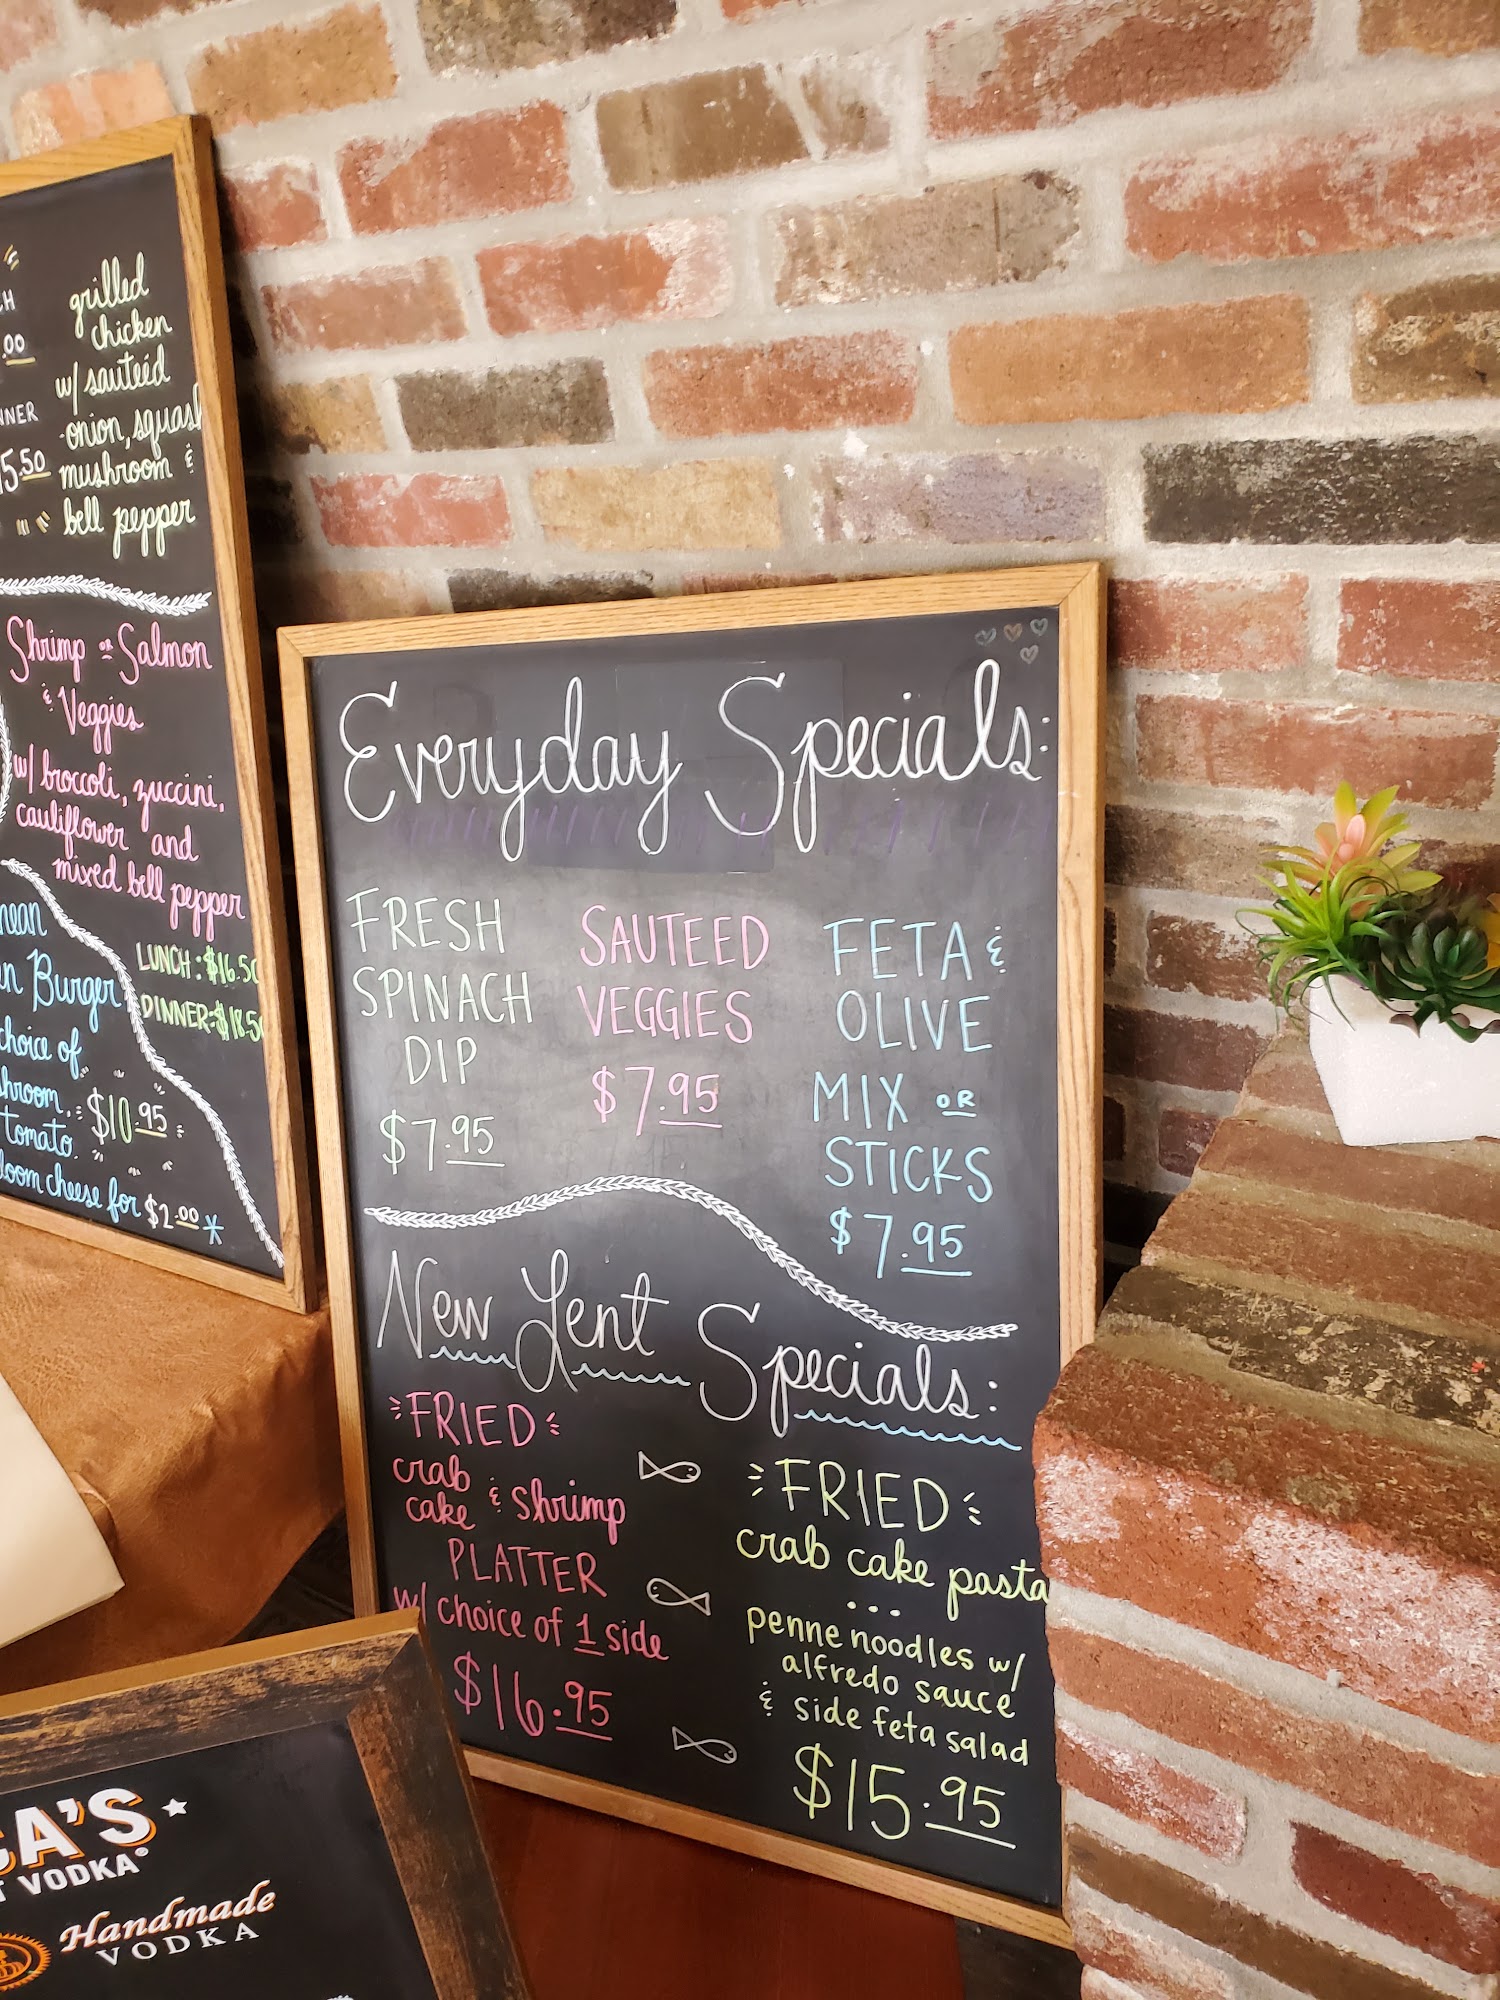 grilled
chicken
w/ sauteéd
onion, squash
mushroom &
bell pepper
.00
15.50
Shrimp or Salmon
& Veggies
w/ broccoli, zuccini,
cauliflower and
mixed bell pepper
LUNCH: $16.50
DINNER: $18.50
Burger
choice of
tomato.
$10.95
cheese for $2.00 *
Everyday Specials:
FRESH
SPINACH
DIP
$7.95
SAUTEED
VEGGIES
$7.95
FETA &
OLIVE
MIX OR
STICKS
$7.95
New Lent Specials:
FRIED
crab
cake & shrimp
PLATTER
w/ choice of 1 side
$16.95
FRIED
crab cake pasta
...
penne noodles w/
alfredo sauce
& side feta salad
$15.95
VODKA
Handmade
VODKA